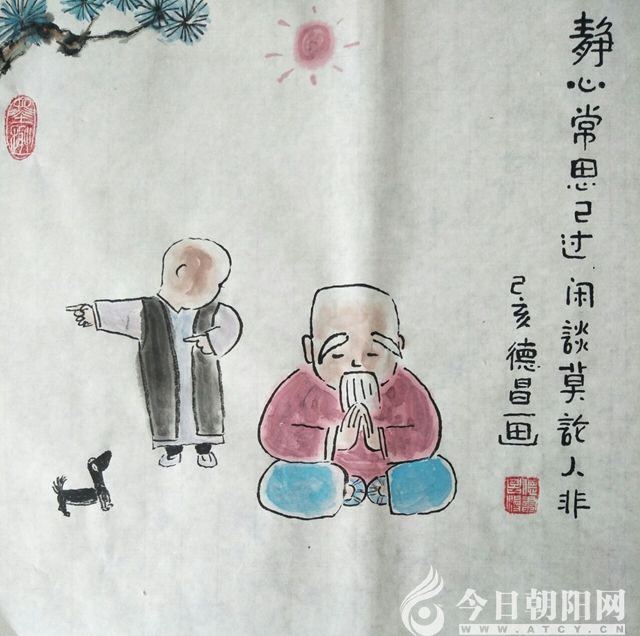 静心常思己过闲談莫论人非
己亥德昌画
今日朝阳网
WWW.ATCY.CN